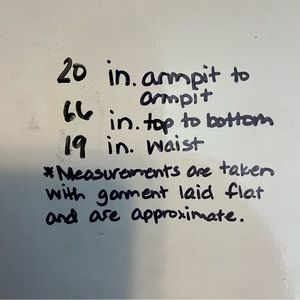 20 in. armpit to
armpit
66 in. top to bottom
19 in. waist
*Measurements are taken
with garment laid flat
and are approximate.